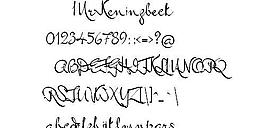 MrKeningbeck
0123456789:;<=>?@
ABCDEFGHIJKLMNOPQ
RSTUVWXYZ[\]^_`\|
abcdefghijklmnopqrs